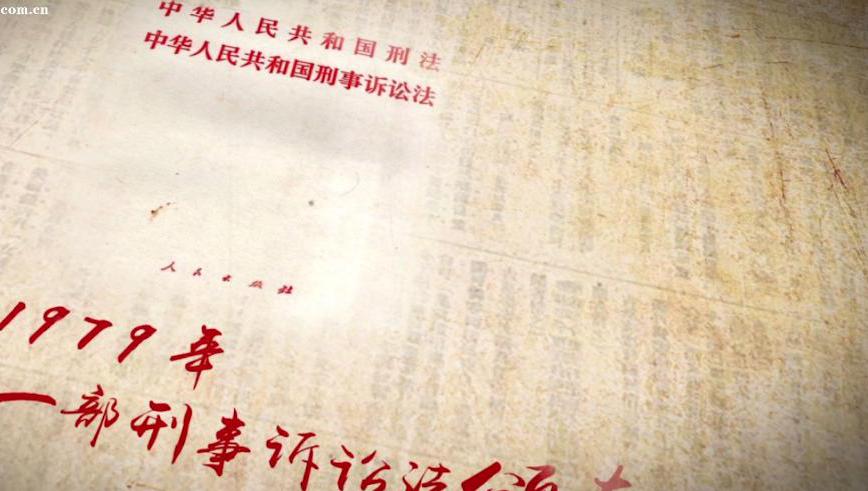 com.cn
中华人民共和国刑法
中华人民共和国刑事诉讼法
人民出版社
1979年
一部刑事诉讼法颁